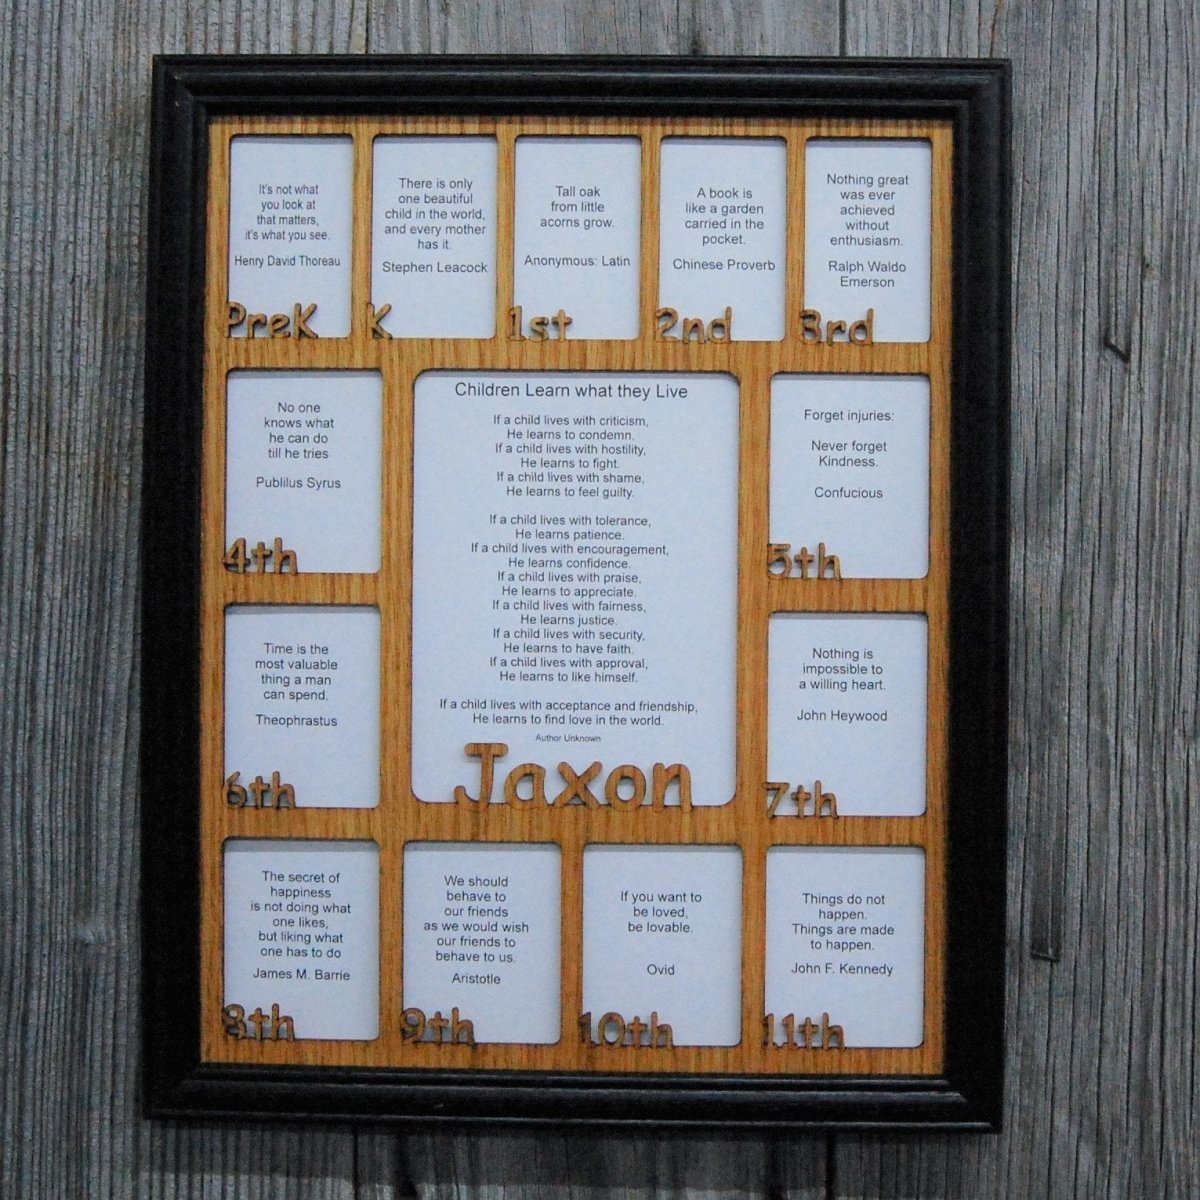 It's not what
you look at
that matters,
it's what you see.
Henry David Thoreau
PreK
There is only
one beautiful
child in the world,
and every mother
has it.
Stephen Leacock
K
Tall oak
from little
acorns grow.
Anonymous: Latin
1st
A book is
like a garden
carried in the
pocket.
Chinese Proverb
2nd
Nothing great
was ever
achieved
without
enthusiasm.
Ralph Waldo
Emerson
3rd
No one
knows what
he can do
till he tries
Publilus Syrus
4th
Children Learn what they Live
If a child lives with criticism,
He learns to condemn.
If a child lives with hostility,
He learns to fight.
If a child lives with shame,
He learns to feel guilty.
If a child lives with tolerance,
He learns patience.
If a child lives with encouragement,
He learns confidence.
If a child lives with praise,
He learns to appreciate.
If a child lives with fairness,
He learns justice.
If a child lives with security,
He learns to have faith.
If a child lives with approval,
He learns to like himself.
If a child lives with acceptance and friendship,
He learns to find love in the world.
Author Unknown
Jaxon
Forget injuries:
Never forget
Kindness.
Confucious
5th
Time is the
most valuable
thing a man
can spend.
Theophrastus
6th
Nothing is
impossible to
a willing heart.
John Heywood
7th
The secret of
happiness
is not doing what
one likes,
but liking what
one has to do
James M. Barrie
8th
We should
behave to
our friends
as we would wish
our friends to
behave to us.
Aristotle
9th
If you want to
be loved,
be lovable.
Ovid
10th
Things do not
happen.
Things are made
to happen.
John F. Kennedy
11th